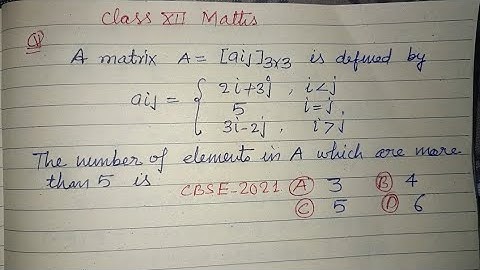 Class XII Maths
Q1
A matrix A = [aij]3x3 is defined by
aij = { 2i+3j , i<j
5 , i=j
3i-2j , i>j
The number of elements in A which are more
than 5 is CBSE-2021 (A) 3 (B) 4
(C) 5 (D) 6